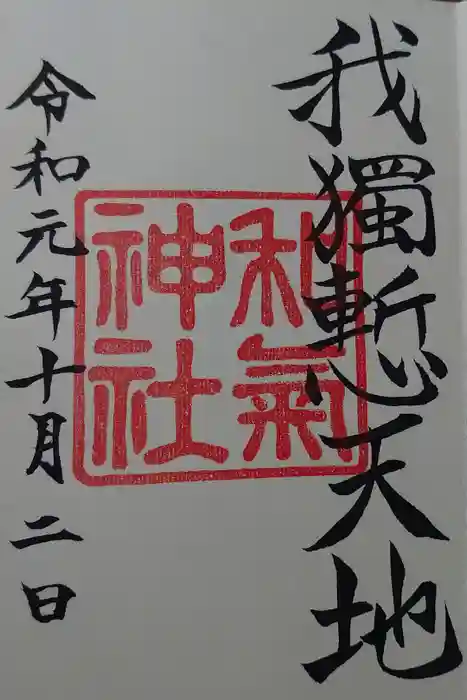 我獨慙天地
和氣
神社
令和元年十月二日